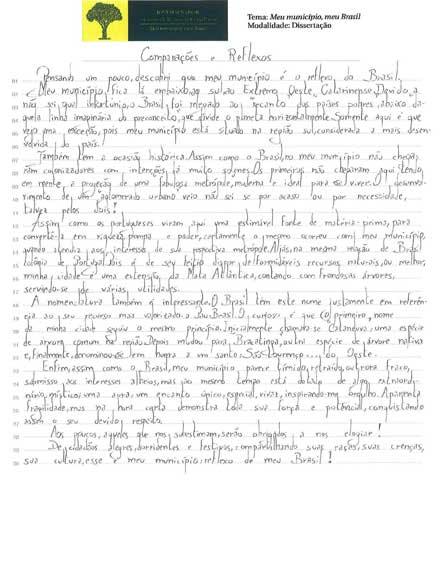 Tema: Meu município, meu Brasil
Modalidade: Dissertação
Comparações e Reflexos
Pensando um pouco, descobri que meu município é o reflexo do Brasil.
Meu município fica lá embaixo, ao sul, ao Extremo Oeste Catarinense. Devido a
não sei qual infortúnio, o Brasil foi relegado ao recanto dos países pobres, abaixo da-
quela linha imaginária do preconceito, que divide o planeta horizontalmente. Somente aqui é que
vejo uma excessão, pois meu município está situado na região sul, considerada a mais desen-
volvida do país.
Também tem a ocasião histórica. Assim como o Brasil, no meu município não chega-
ram colonizadores com intenções já muito solenes. Os primeiros não chegaram aqui tendo
em mente a projeção de uma fabulosa metrópole, moderna e ideal para se viver. O desenvol-
vimento de um aglomerado urbano veio não sei se por acaso ou por necessidade,
talvez pelos dois!
Assim como os portugueses viram aqui uma estimável fonte de matéria-prima, para
convertê-la em riqueza, pompa e poder, certamente o mesmo ocorreu com meu município,
quando atendia aos interesses de sua respectiva metrópole. Aliás, na mesma relação de Brasil
colônia de Portugal. Pois é de seu feitio dispor de formidáveis recursos naturais, ou melhor,
minha cidade é uma extensão da Mata Atlântica, contando com frondosas árvores,
servindo-se de várias utilidades.
A nomenclatura também é interessante. O Brasil tem este nome justamente em referên-
cia ao seu recurso mais valorizado: o Pau-Brasil. O curioso é que o primeiro nome
da minha cidade seguiu o mesmo princípio. Inicialmente chamava-se Catanduva, uma espécie
de árvore comum na região. Depois mudou para Bracatinga, outra espécie de árvore nativa
e, finalmente, denominou-se em honra a um santo: São Lourenço... do Oeste.
Enfim, assim como o Brasil, meu município parece tímido, retraído, outrora fraco,
submisso aos interesses alheios, mas ao mesmo tempo está dotado de algo extraordi-
nário, místico, uma aura, um encanto único, especial, vivaz, inspirando-me orgulho. Aparenta
fragilidade, mas na hora certa demonstra toda sua força e potencial, conquistando
assim o seu devido respeito.
Aos poucos, aqueles que nos subestimam, serão obrigados a nos elogiar!
De cidadãos alegres, sorridentes e festivos, compartilhando suas raças, suas crenças,
sua cultura, esse é meu município: reflexo de meu Brasil!